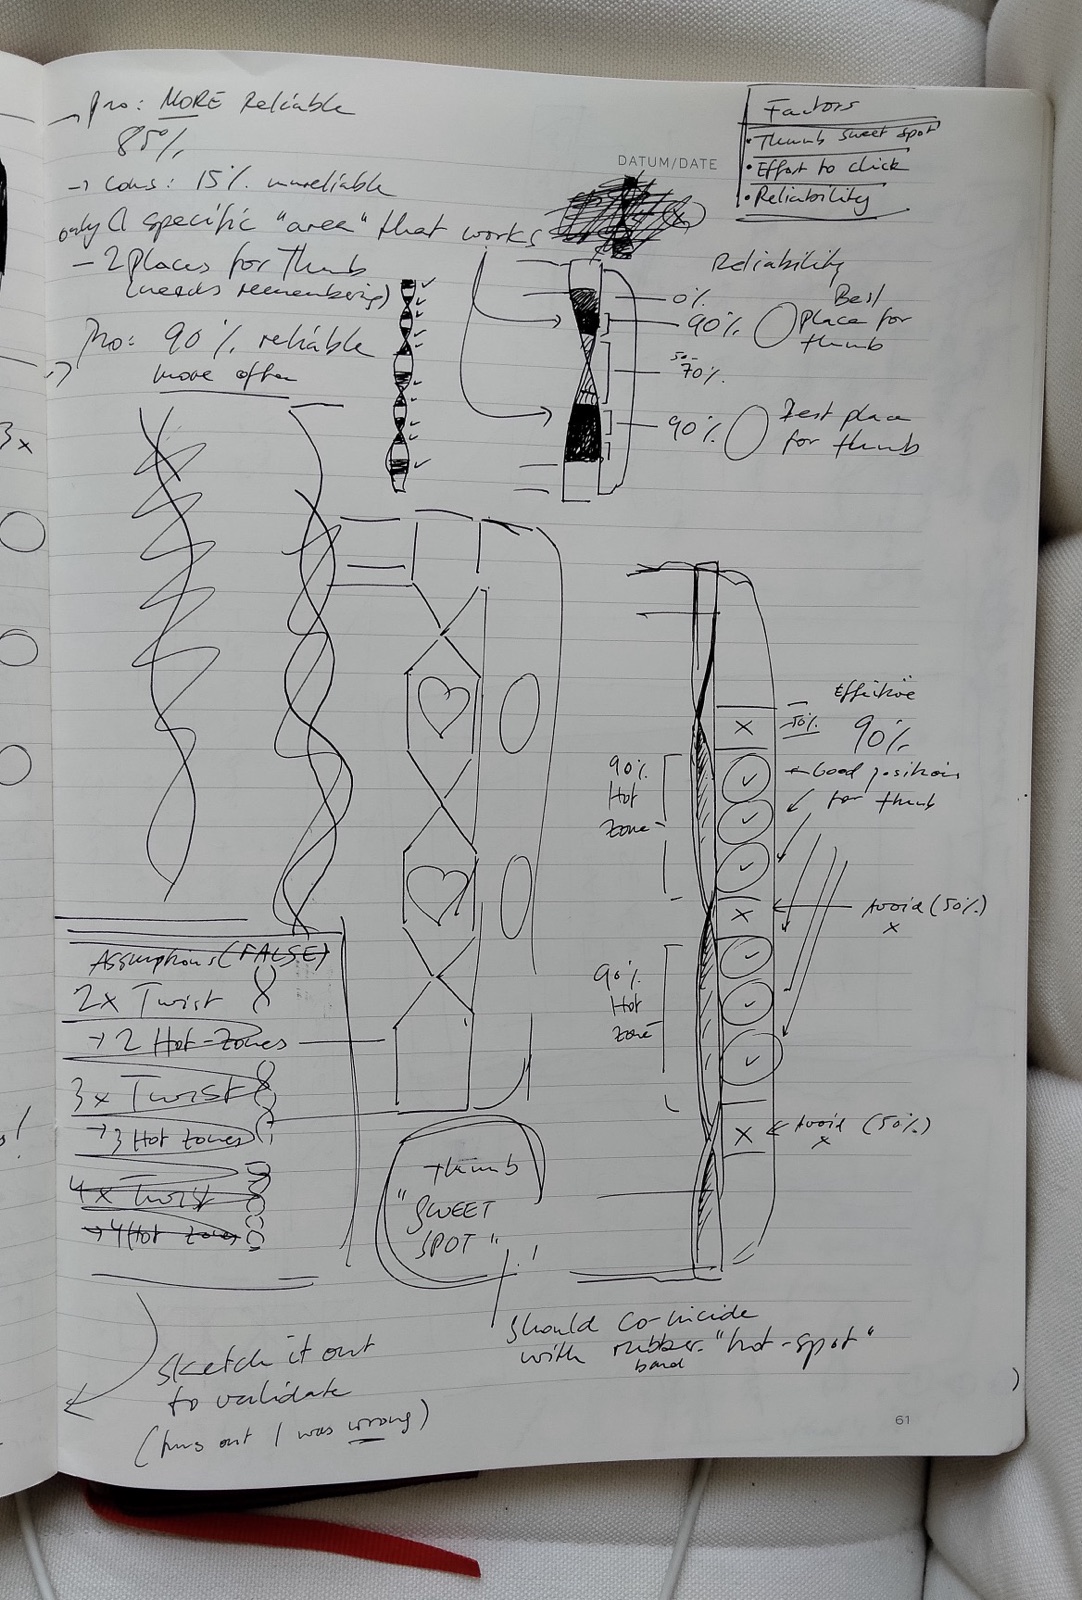 → Pro: MORE Reliable
85%
→ Cons: 15% unreliable
only a specific "area" that works
- 2 Places for Thumb
(needs remembering)
Pro: 90% reliable
more often
DATUM/DATE
Factors
• Thumb sweet spot
• Effort to click
• Reliability
Reliability
0%
90%
Best
place for
thumb
50-
70%
90%
Best place
for thumb
3x
Effective
90%
50%
90%
Hot
Zone
← Good positions
for thumb
Avoid (50%)
x
90%
Hot
Zone
Avoid (50%)
x
Assumptions (FALSE)
2x Twist
→ 2 Hot-Zones
3x Twist
→ 3 Hot zones
4x Twist
→ 4 Hot zones
Thumb
"SWEET
SPOT"
!
should co-incide
with rubber "hot-spot"
band
Sketch it out
to validate
(turns out I was wrong)
61